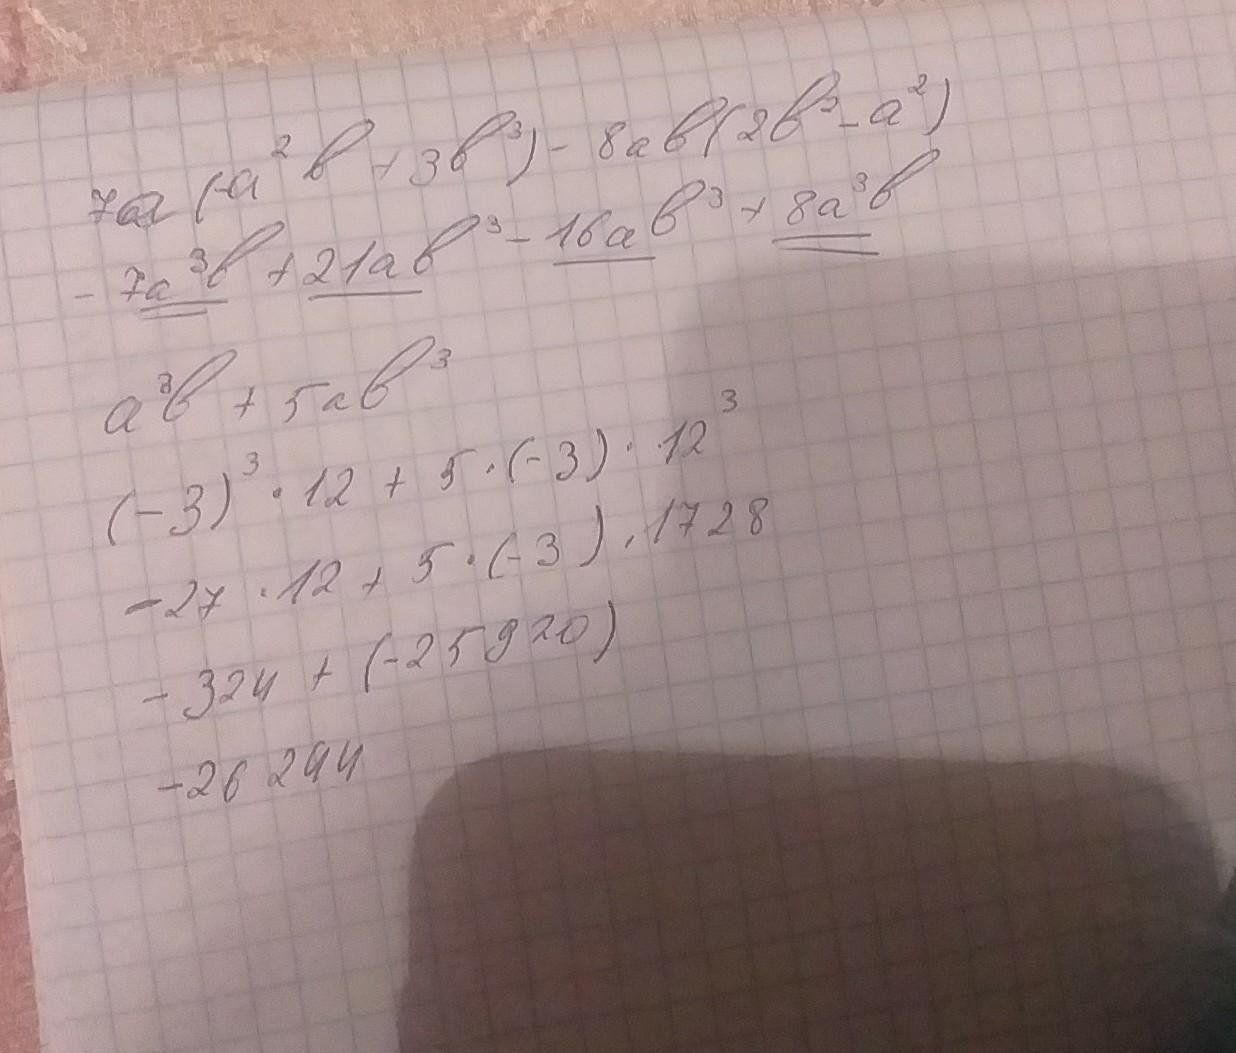 7a (-a² b + 3b³) - 8ab(2b² - a²)
- 7a³b + 21ab³ - 16ab³ + 8a³b
a³b + 5ab³
(-3)³ · 12 + 5 · (-3) · 12³
-27 · 12 + 5 · (-3) · 1728
- 324 + (-25920)
-26 244